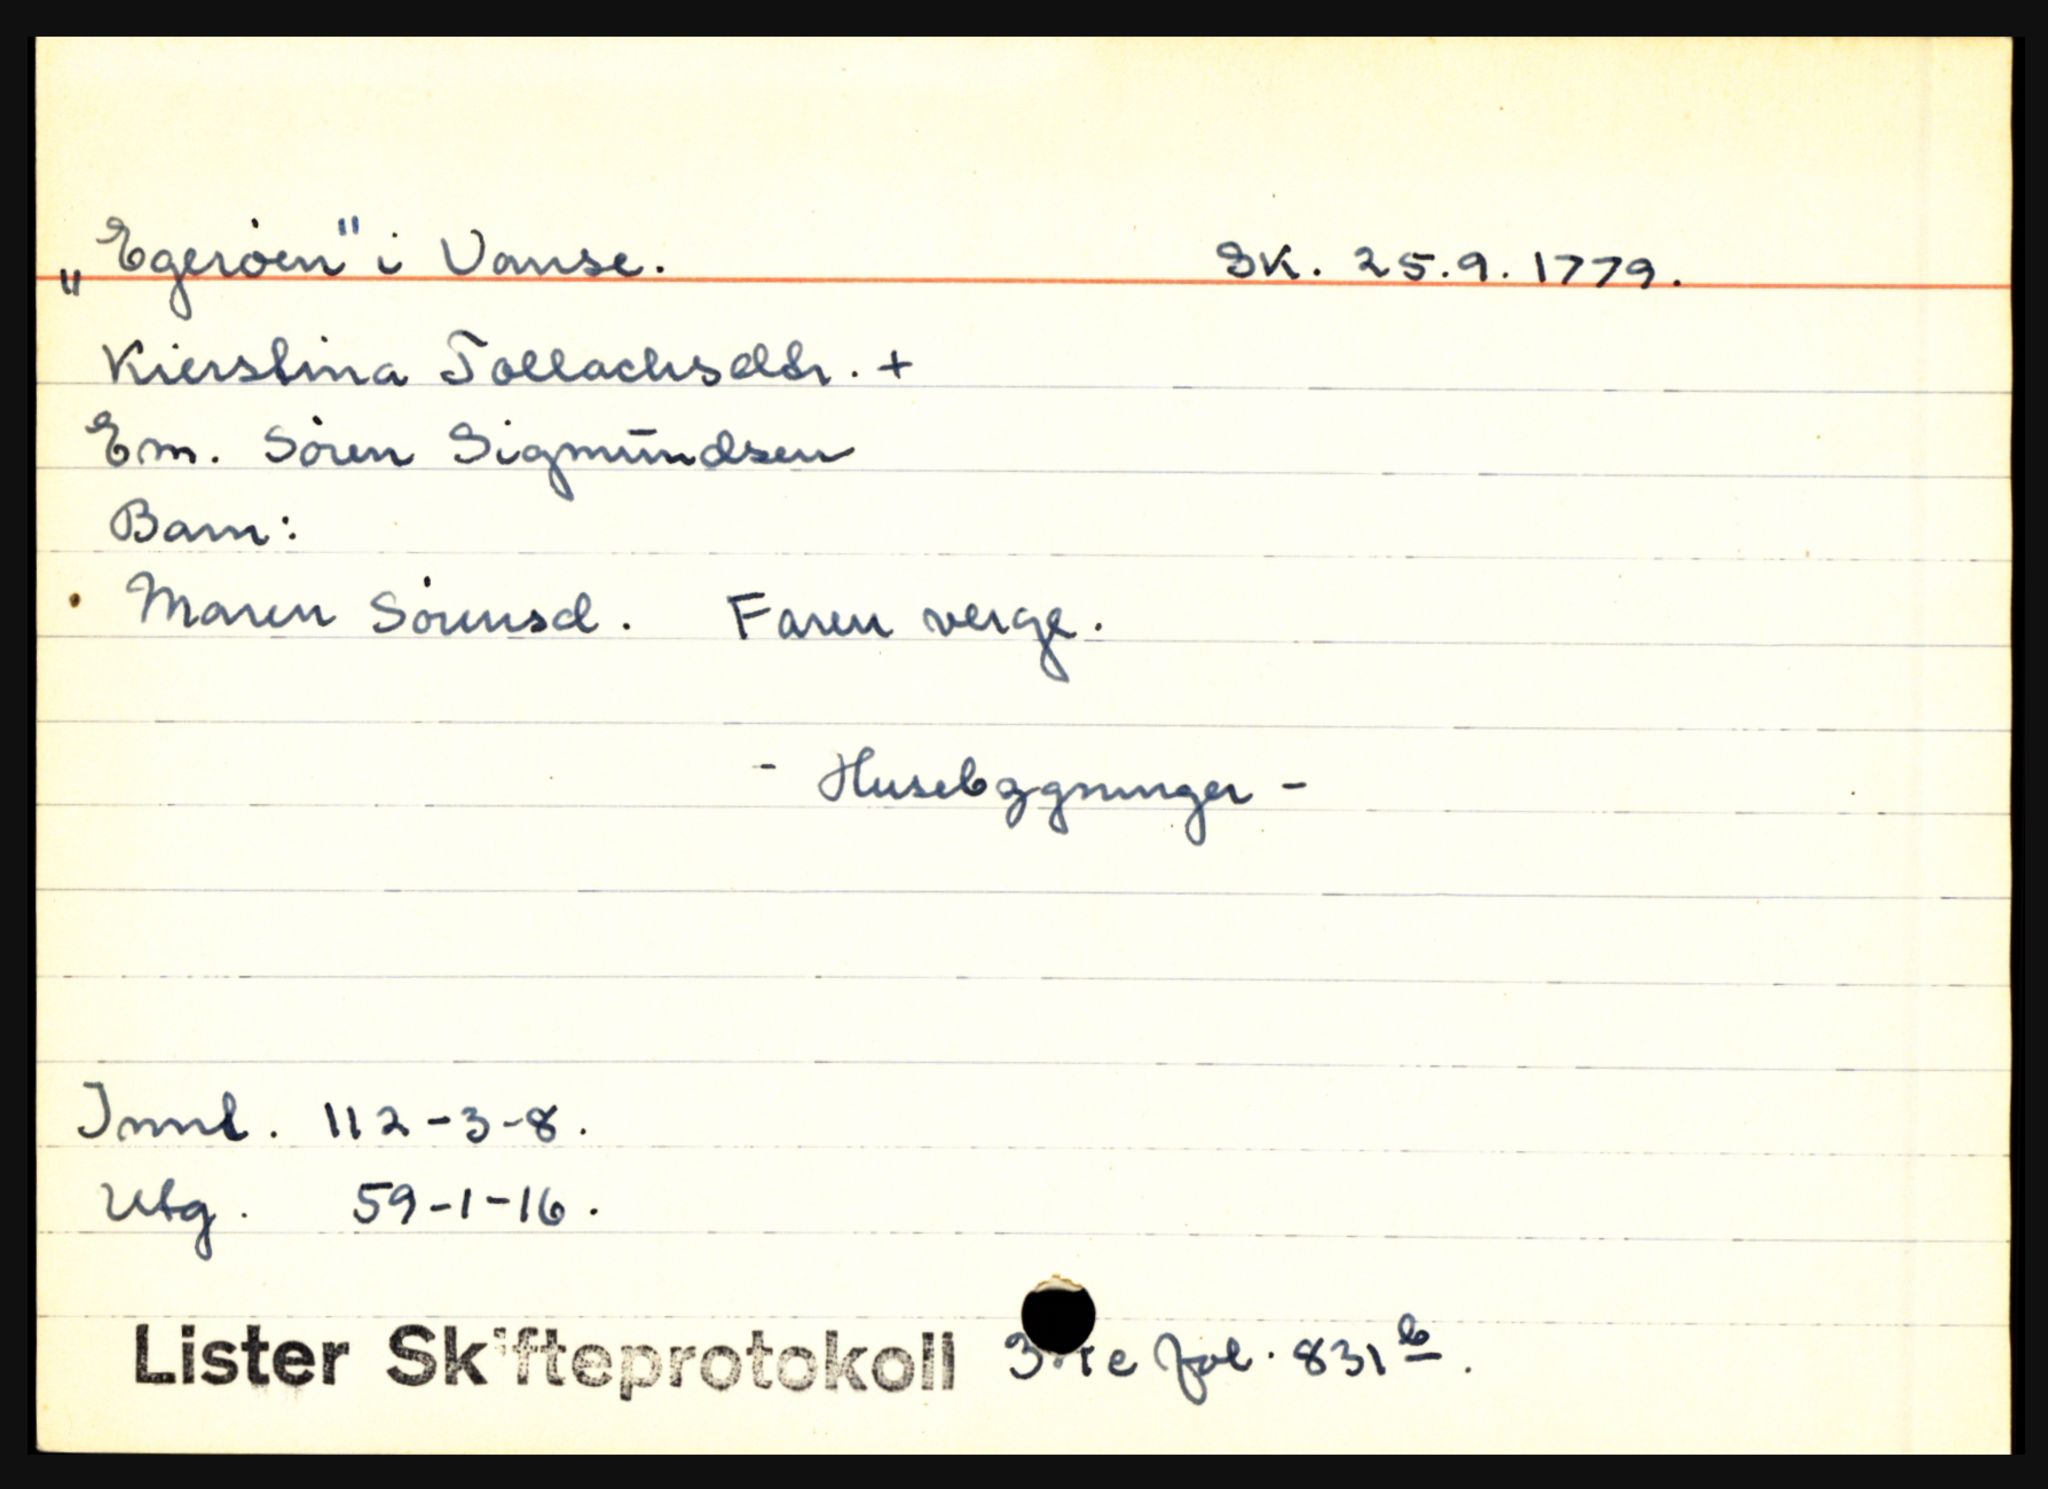 „Egerøen" i Vanse. Sk. 25.9.1779.
Kierstina Tollachsdtr. +
Em. Sören Sigmūndsen
Barn:
Maren Sörensd. Faren verge.
- Husebygninger -
Innt. 112-3-8.
Utg. 59-1-16.
Lister Skifteprotokoll fol. 831 b.